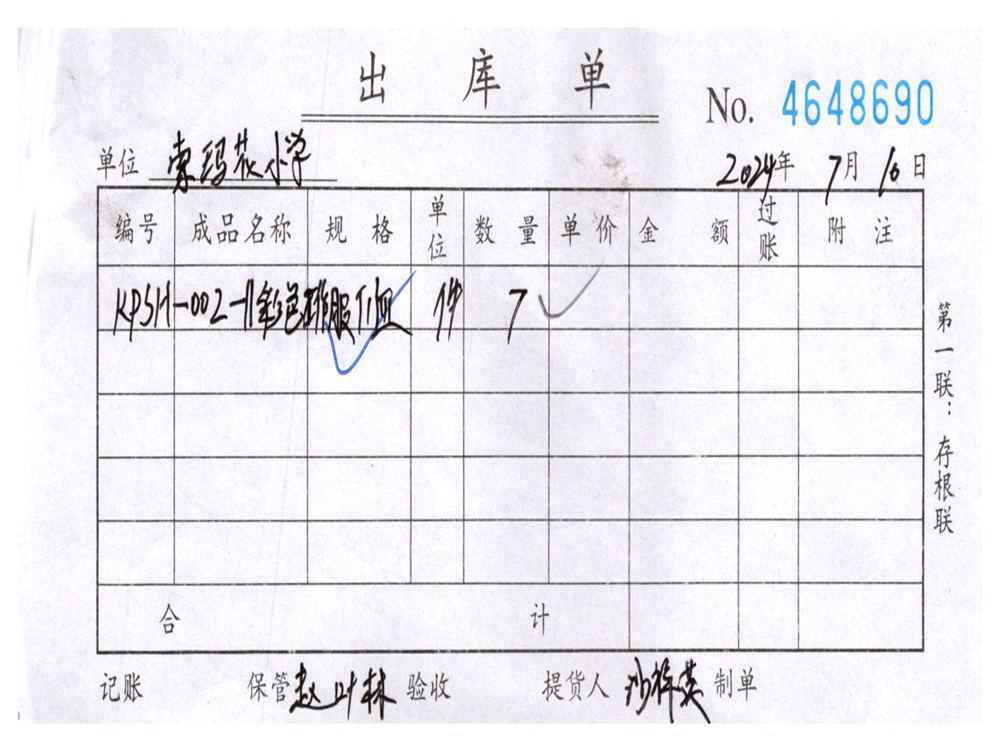 出 库 单
No. 4648690
单位 索玛花小学 2024年 7月 16日
编号 成品名称 规 格 单位 数 量 单 价 金 额 过账 附 注
KPSH-002-11 彩色 工作服 件 7
合 计
记账 保管 赵叶林 验收 提货人 沙祥英 制单
第一联：存根联